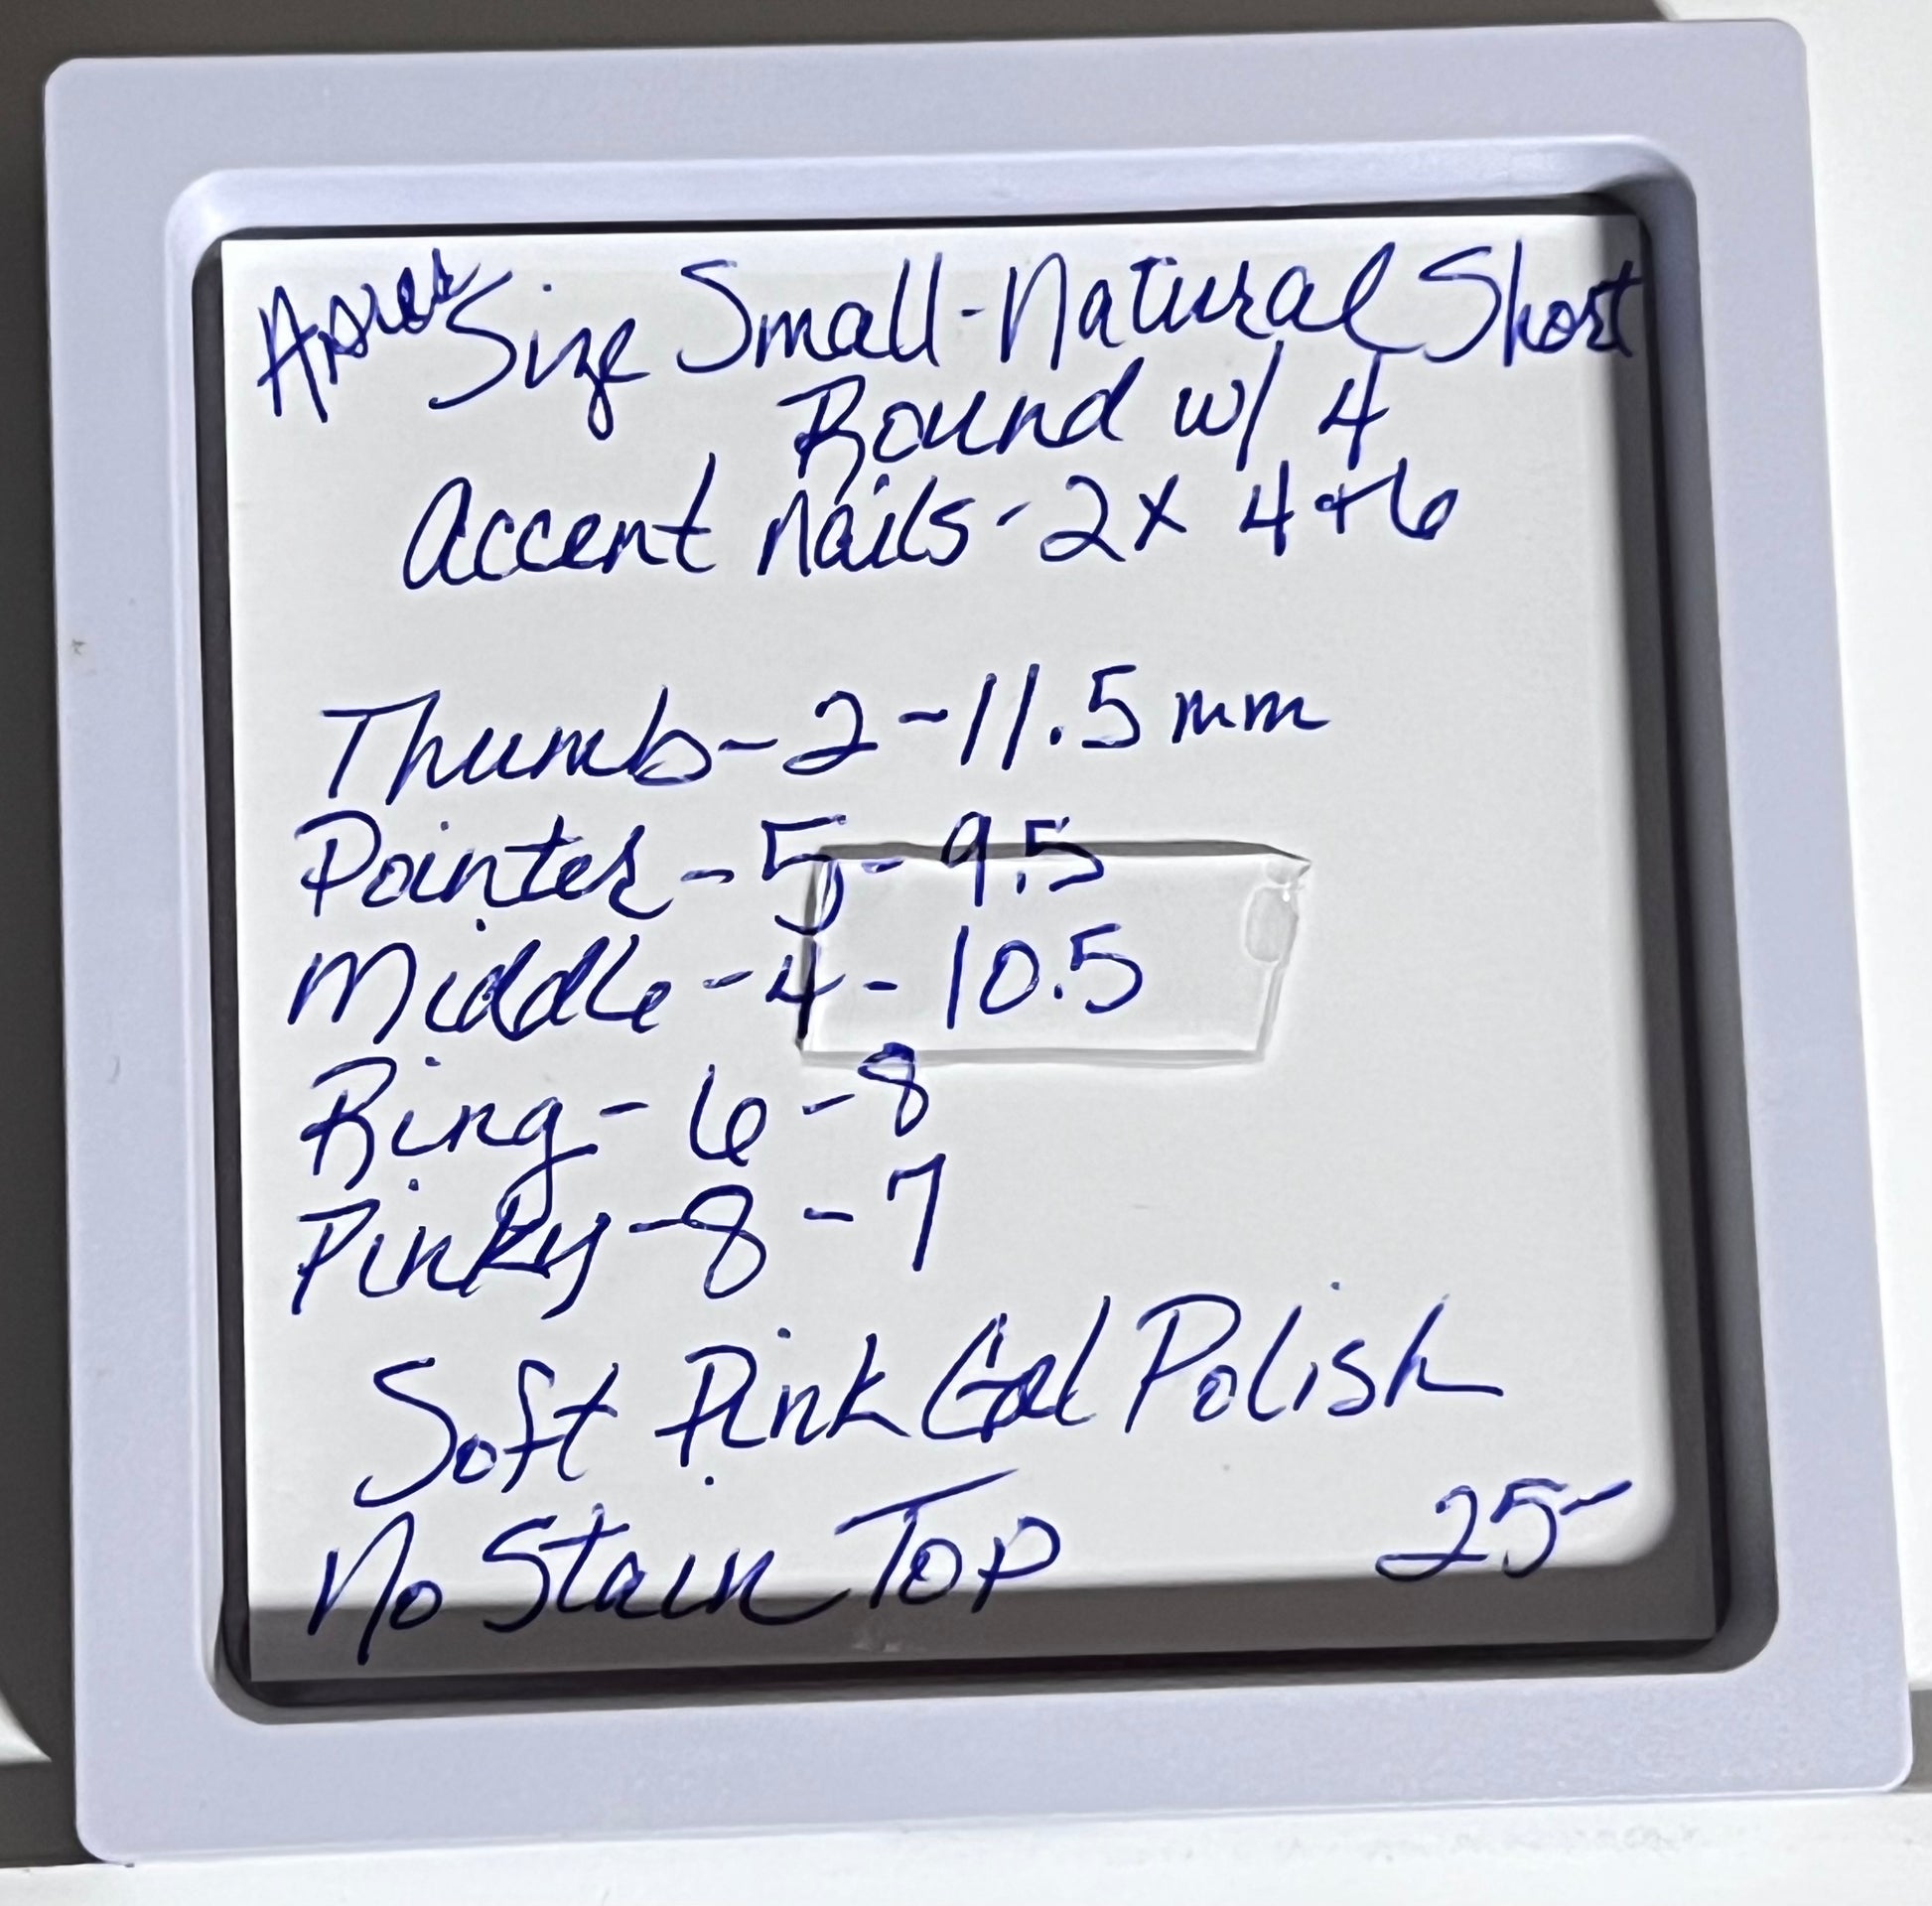 Apres Size Small-Natural Short
Round w/ 4
Accent Nails - 2x 4+6
Thumb - 2 - 11.5 mm
Pointer - 5 - 9.5
Middle - 4 - 10.5
Ring - 6 - 8
Pinky - 8 - 7
Soft Pink Gel Polish
No Stain Top 25-